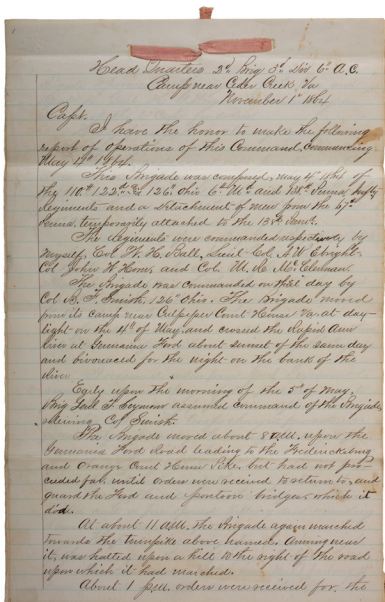 Head Quarters 2d Brig 3d Div 6th A.C.
Camp near Cedar Creek, Va
November 1st 1864
Capt.
I have the honor to make the following
report of operations of this Command, commencing
May 4th 1864.
This Brigade was composed, May 4th 1864 of
the 110th 122nd & 126th Ohio 6th Md and 138th Penna.
Regiments and a detachment of men from the 67th
Penna. temporarily attached to the 138th Penna.
The Regiments were commanded respectively by
myself, Col W. H. Ball, Lieut Col. A W Ebright
Col John W Horn, and Col M. R. McClennan.
The Brigade was commanded on that day by
Col B. F. Smith, 126th Ohio. The Brigade moved
from its camp near Culpeper Court House Va. at day-
light on the 4th of May and crossed the Rapid Ann
river at Germania Ford about sunset of the same day
and bivouaced for the night on the bank of the
river.
Early upon the morning of the 5th of May,
Brig Genl T. Seymour assumed command of the Brigade,
relieving Col Smith.
The Brigade moved about 8 A.M. upon the
Germania Ford Road leading to the Fredericksburg
and Orange Court House Pike, but had not pro-
ceeded far, until orders were received to return to, and
guard the Ford and pontoon bridges, which it
did.
At about 11 A.M. the Brigade again marched
towards the turnpike above named. Arriving near
it, was halted upon a hill to the right of the road
upon which it had marched.
About 1 P.M. orders were received for the